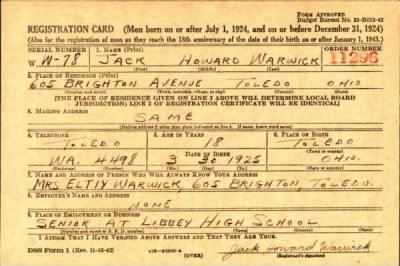 FORM APPROVED
Budget Bureau No. 33-R012-42
REGISTRATION CARD (Men born on or after July 1, 1924, and on or before December 31, 1924)
(Also for the registration of men as they reach the 18th anniversary of the date of their birth on or after January 1, 1943.)
SERIAL NUMBER 1. NAME (Print) ORDER NUMBER
W W-78 JACK HOWARD WARWICK 11296
(First) (Middle) (Last)
2. PLACE OF RESIDENCE (Print)
605 BRIGHTON AVENUE TOLEDO OHIO
(Number and street) (Town, township, village, or city) (County) (State)
[THE PLACE OF RESIDENCE GIVEN ON LINE 2 ABOVE WILL DETERMINE LOCAL BOARD
JURISDICTION; LINE 2 OF REGISTRATION CERTIFICATE WILL BE IDENTICAL]
3. MAILING ADDRESS
SAME
[Mailing address if other than place indicated on line 2. If same, insert word same]
4. TELEPHONE 5. AGE IN YEARS 6. PLACE OF BIRTH
TOLEDO 18 TOLEDO
DATE OF BIRTH (Town or county)
WA. 4498 3 30 1925 OHIO.
(Exchange) (Number) (Mo.) (Day) (Yr.) (State or country)
7. NAME AND ADDRESS OF PERSON WHO WILL ALWAYS KNOW YOUR ADDRESS
MRS ELTIY WARWICK 605 BRIGHTON, TOLEDO.
8. EMPLOYER'S NAME AND ADDRESS
NONE
9. PLACE OF EMPLOYMENT OR BUSINESS
SENIOR AT LIBBEY HIGH SCHOOL
(Number and street or R. F. D. number) (Town) (County) (State)
I AFFIRM THAT I HAVE VERIFIED ABOVE ANSWERS AND THAT THEY ARE TRUE.
DSS FORM 1 (Rev. 11-16-42) (OVER) Jack Howard Warwick
(Registrant's signature)